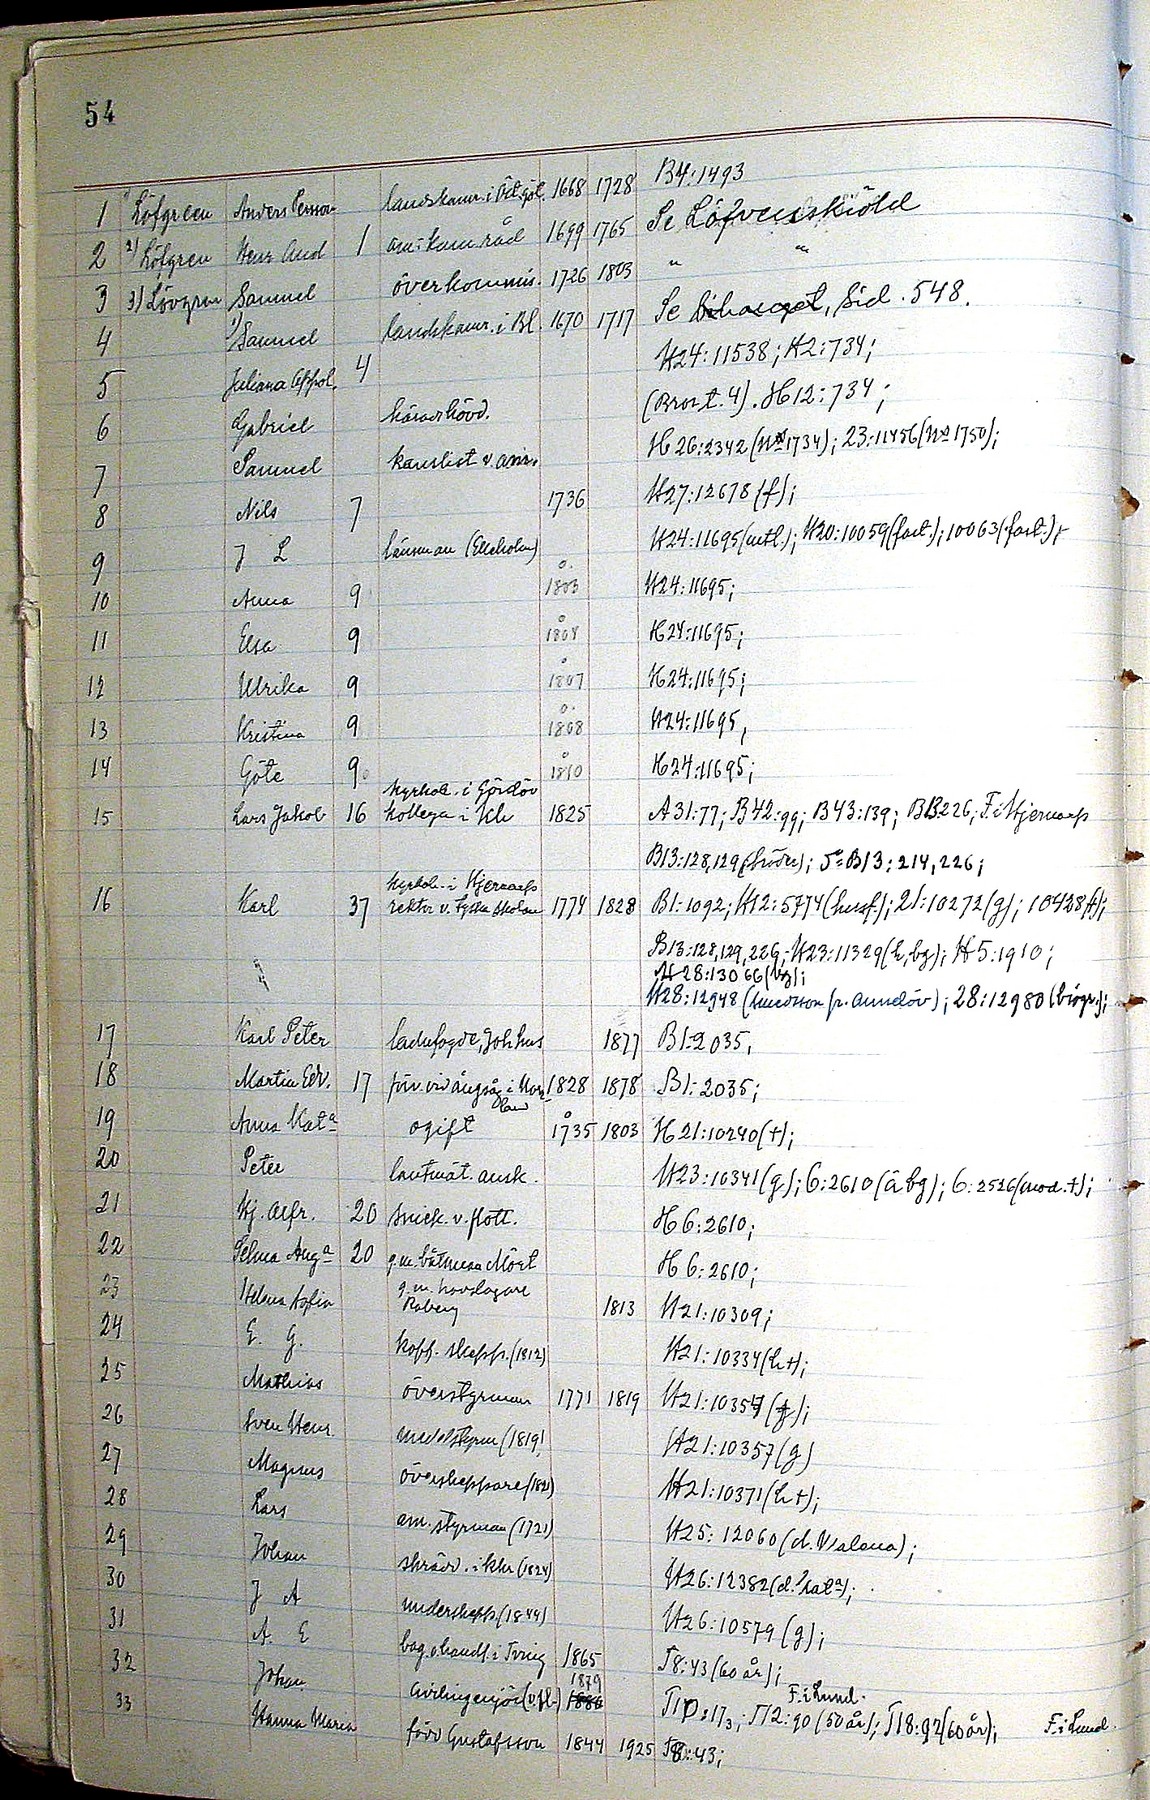 54
1 1) Löfgren Anders Persson landskamr. i Öst.göt. 1668 1728 B4:1493
2 2) Löfgren Henr And 1 am:kam.råd 1699 1765 Se Löfvenskiöld
3 3) Lövgren Samuel överkommis. 1726 1803 " "
4 1) Samuel landskamr. i Bl. 1670 1717 Se bihanget, Sid. 548.
5 Juliana Appol. 4 H24:11538; H2:734;
6 Gabriel häradshövd. (Bror t. 4). H12:734;
7 Samuel kanslist v. amir. H26:2342 (1734); 23:11456 (1750);
8 Nils 7 1736 H27:12678 (f);
9 J L länsman (Elleholm) H24:11695 (mtl.); H20:10059 (fast.); 10063 (fast.);
10 Anna 9 o. 1803 H24:11695;
11 Elsa 9 o 1804 H24:11695;
12 Ulrika 9 o 1807 H24:11695;
13 Kristina 9 o. 1808 H24:11695,
14 Göte 9 o 1810 H24:11695;
15 Lars Jakob 16 kyrkoh. i Gördöv kollega i Kh 1825 A31:77; B42:99; B43:139; B13:226; F. i Hjernarp
B13:128,129 (bröder); B13:214,226;
16 Karl 37 kyrkoh. i Hjernarp rektor v. tyska skolan 1774 1828 B1:1092; H12:5774; 21:10272 (g); 10428
B13:128,129,226; H23:11329 (h, bg); H5:1910;
H28:13066 (bg);
H28:12948; 28:12980 (biogr.);
17 Karl Peter ladufogde, Joh.hus 1877 B1:2035,
18 Martin Edv. 17 förv. vid ångsåg i Norrland 1828 1878 B1:2035;
19 Anna Kata ogift o 1735 1803 H21:10240 (†);
20 Peter lantmät. ausk. H23:10341 (g); 6:2610 (å bg); 6:2526 (mod. †);
21 Hj. Alfr. 20 snick. v. flott. H6:2610;
22 Selma Auga 20 g.m. båtsman Mört H6:2610;
23 Helena Sofia g.m. hovslagare Roberg 1813 H21:10309;
24 E. G. koff. skepp. (1812) H21:10334 (h†);
25 Mathias överstyrman 1771 1819 H21:10354 (g);
26 Sven Henr. medelstyrm (1819) H21:10357 (g)
27 Magnus överskeppare (1821) H21:10371 (h†);
28 Lars am. styrman (1721) H25:12060;
29 Johan skrädd. i Khr (1824) H26:12382 (d. Kata);
30 J A underskepp (1844) H26:10579 (g);
31 A. E bag. o handl. i Tving 1865 T8:43 (60 år);
32 Johan Civilingenjör 1879 T10:173; T12:90 (50 år); F. i Lund. T18:92 (60 år); F. i Lund.
33 Hanna Maria född Gustafsson 1844 1925 T8:43;